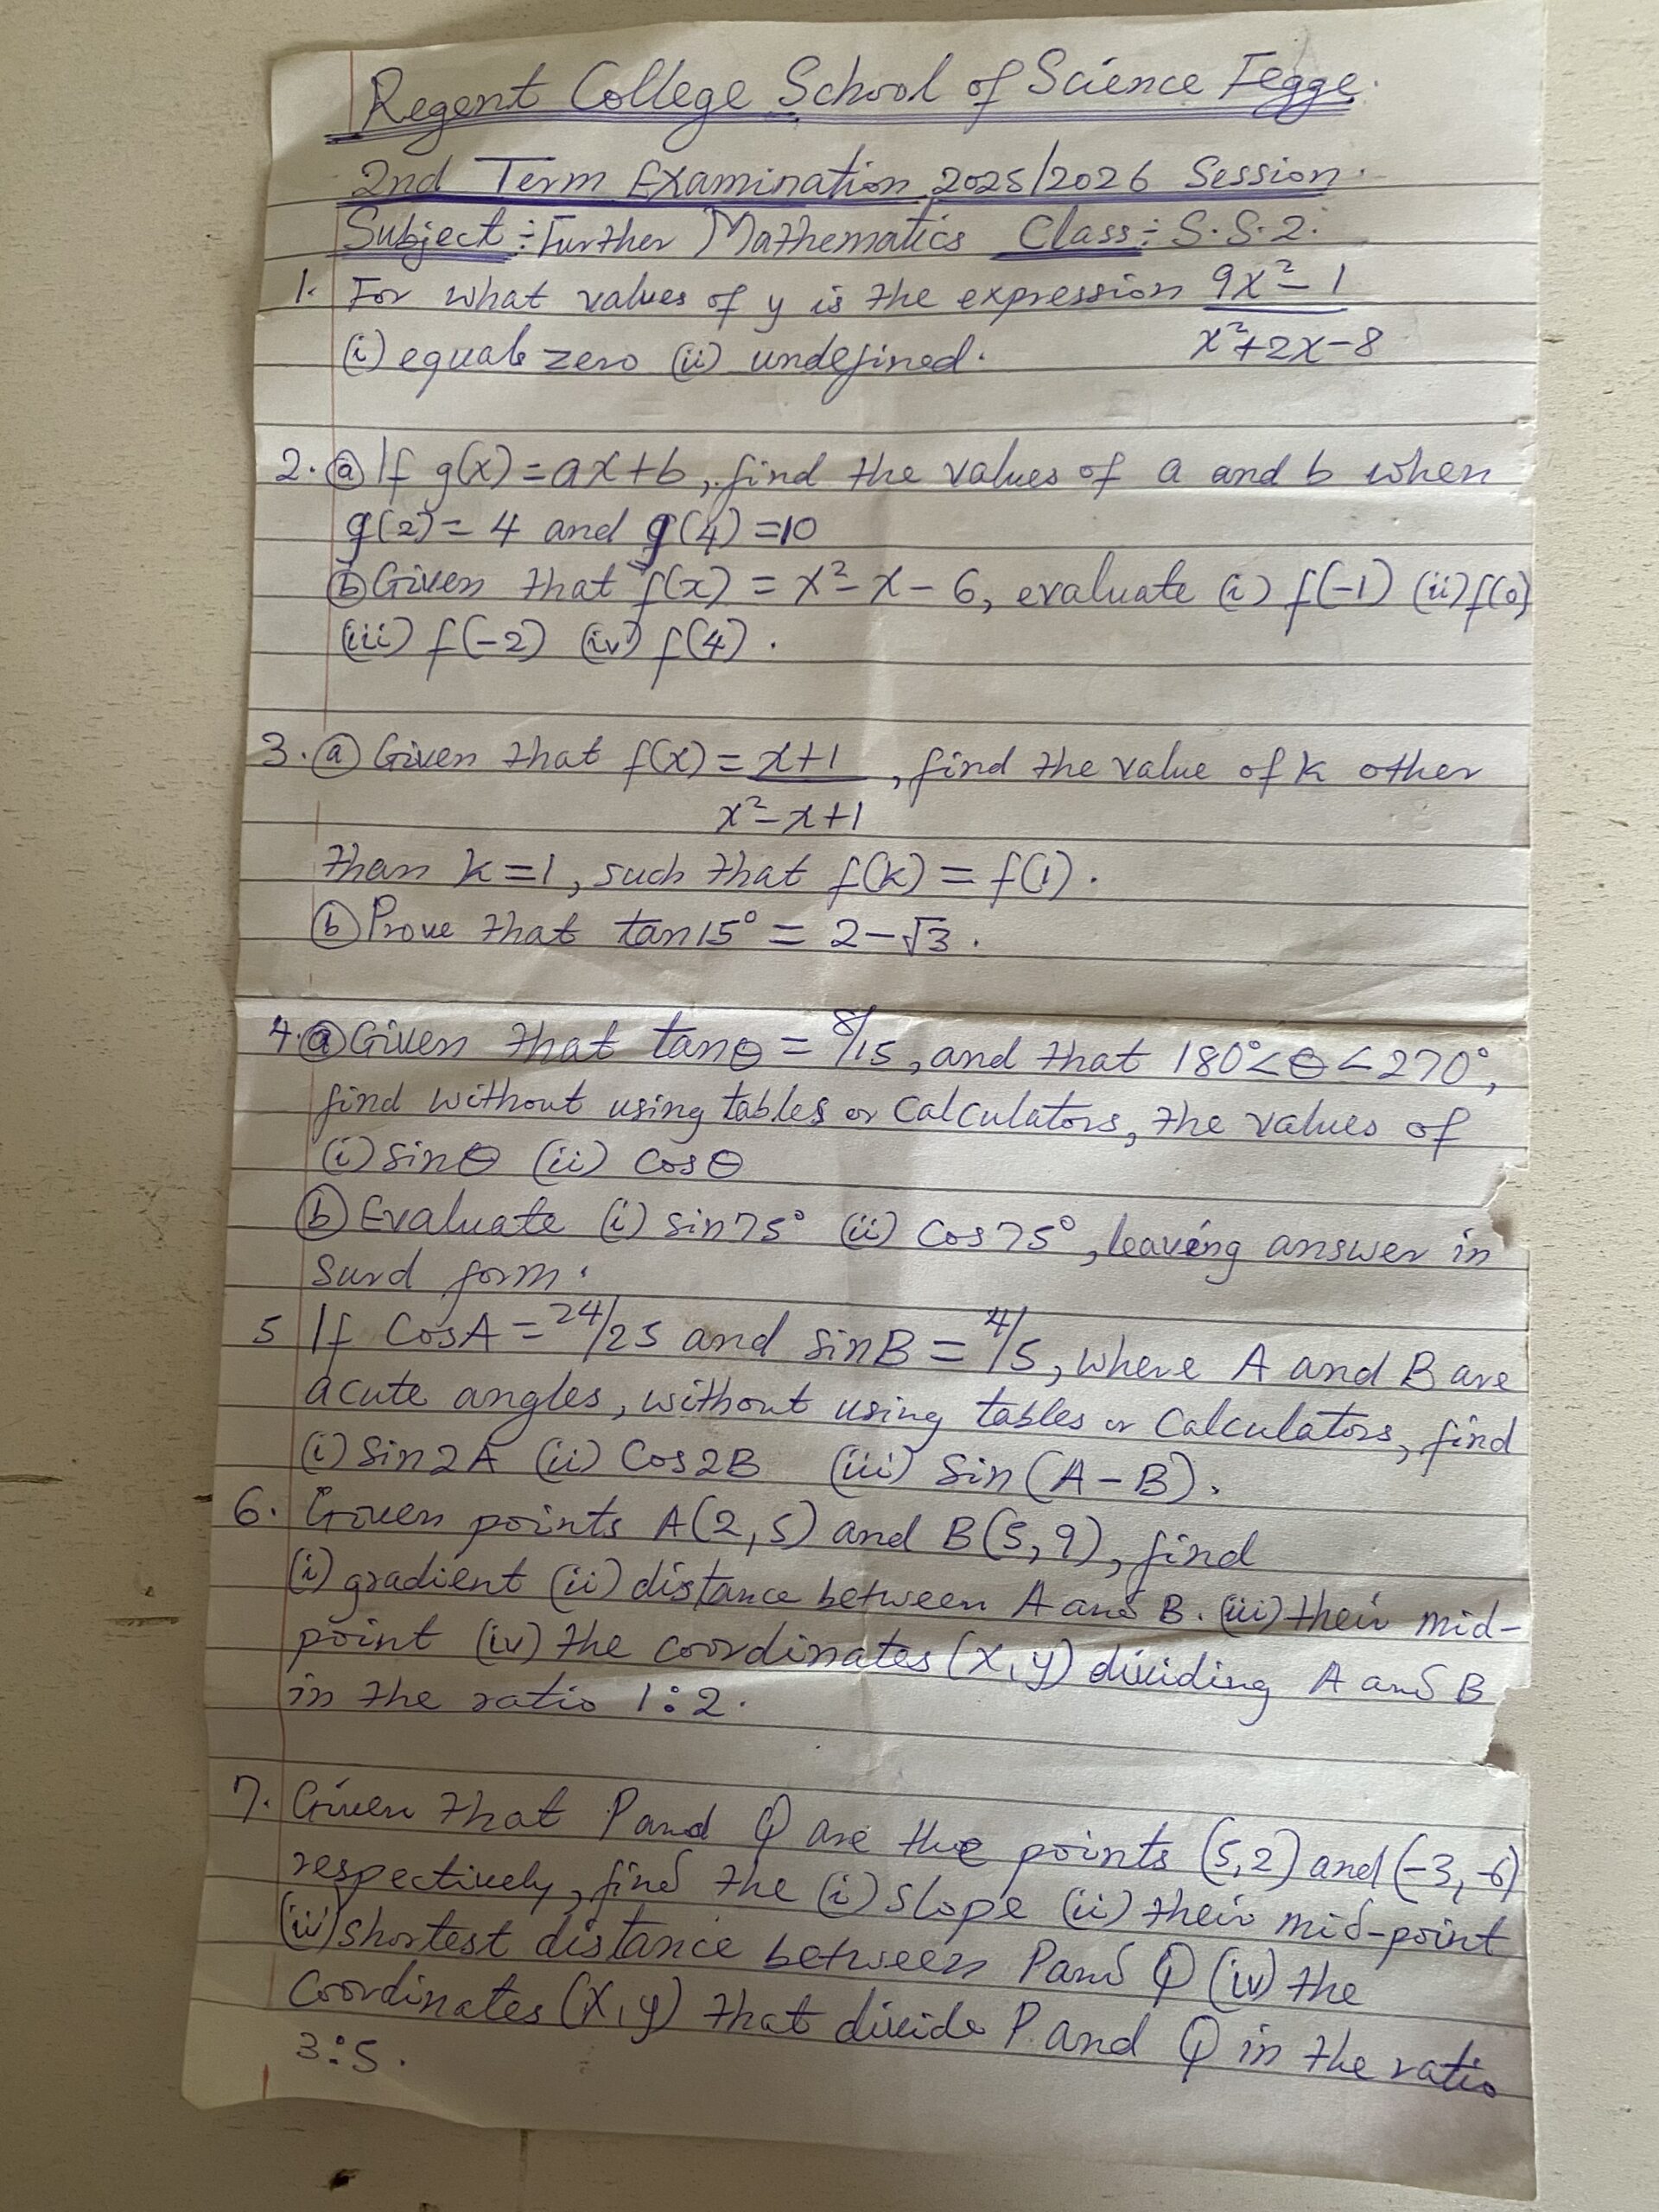 Regent College School of Science Fegge.
2nd Term Examination 2025/2026 Session.
Subject:- Further Mathematics Class:- S.S.2.
1. For what values of y is the expression 9x² - 1 / x² + 2x - 8
(i) equals zero (ii) undefined.
2. (a) If g(x) = ax + b, find the values of a and b when
g(2) = 4 and g(4) = 10
(b) Given that f(x) = x² - x - 6, evaluate (i) f(-1) (ii) f(0)
(iii) f(-2) (iv) f(4).
3. (a) Given that f(x) = x+1 / x² - x + 1, find the value of k other
than k = 1, such that f(k) = f(1).
(b) Prove that tan 15° = 2 - √3.
4. (a) Given that tanθ = 8/15, and that 180° < θ < 270°,
find without using tables or calculators, the values of
(i) sinθ (ii) cosθ
(b) Evaluate (i) sin75° (ii) cos75°, leaving answer in
surd form.
5 If CosA = 24/25 and sinB = 4/5, where A and B are
acute angles, without using tables or calculators, find
(i) Sin2A (ii) Cos2B (iii) Sin(A - B).
6. Given points A(2,5) and B(5,9), find
(i) gradient (ii) distance between A and B. (iii) their mid-
point (iv) the coordinates (x,y) dividing A and B
in the ratio 1:2.
7. Given that P and Q are the points (5,2) and (-3,-6)
respectively, find the (i) slope (ii) their mid-point
(iii) shortest distance between P and Q (iv) the
coordinates (x,y) that divide P and Q in the ratio
3:5.